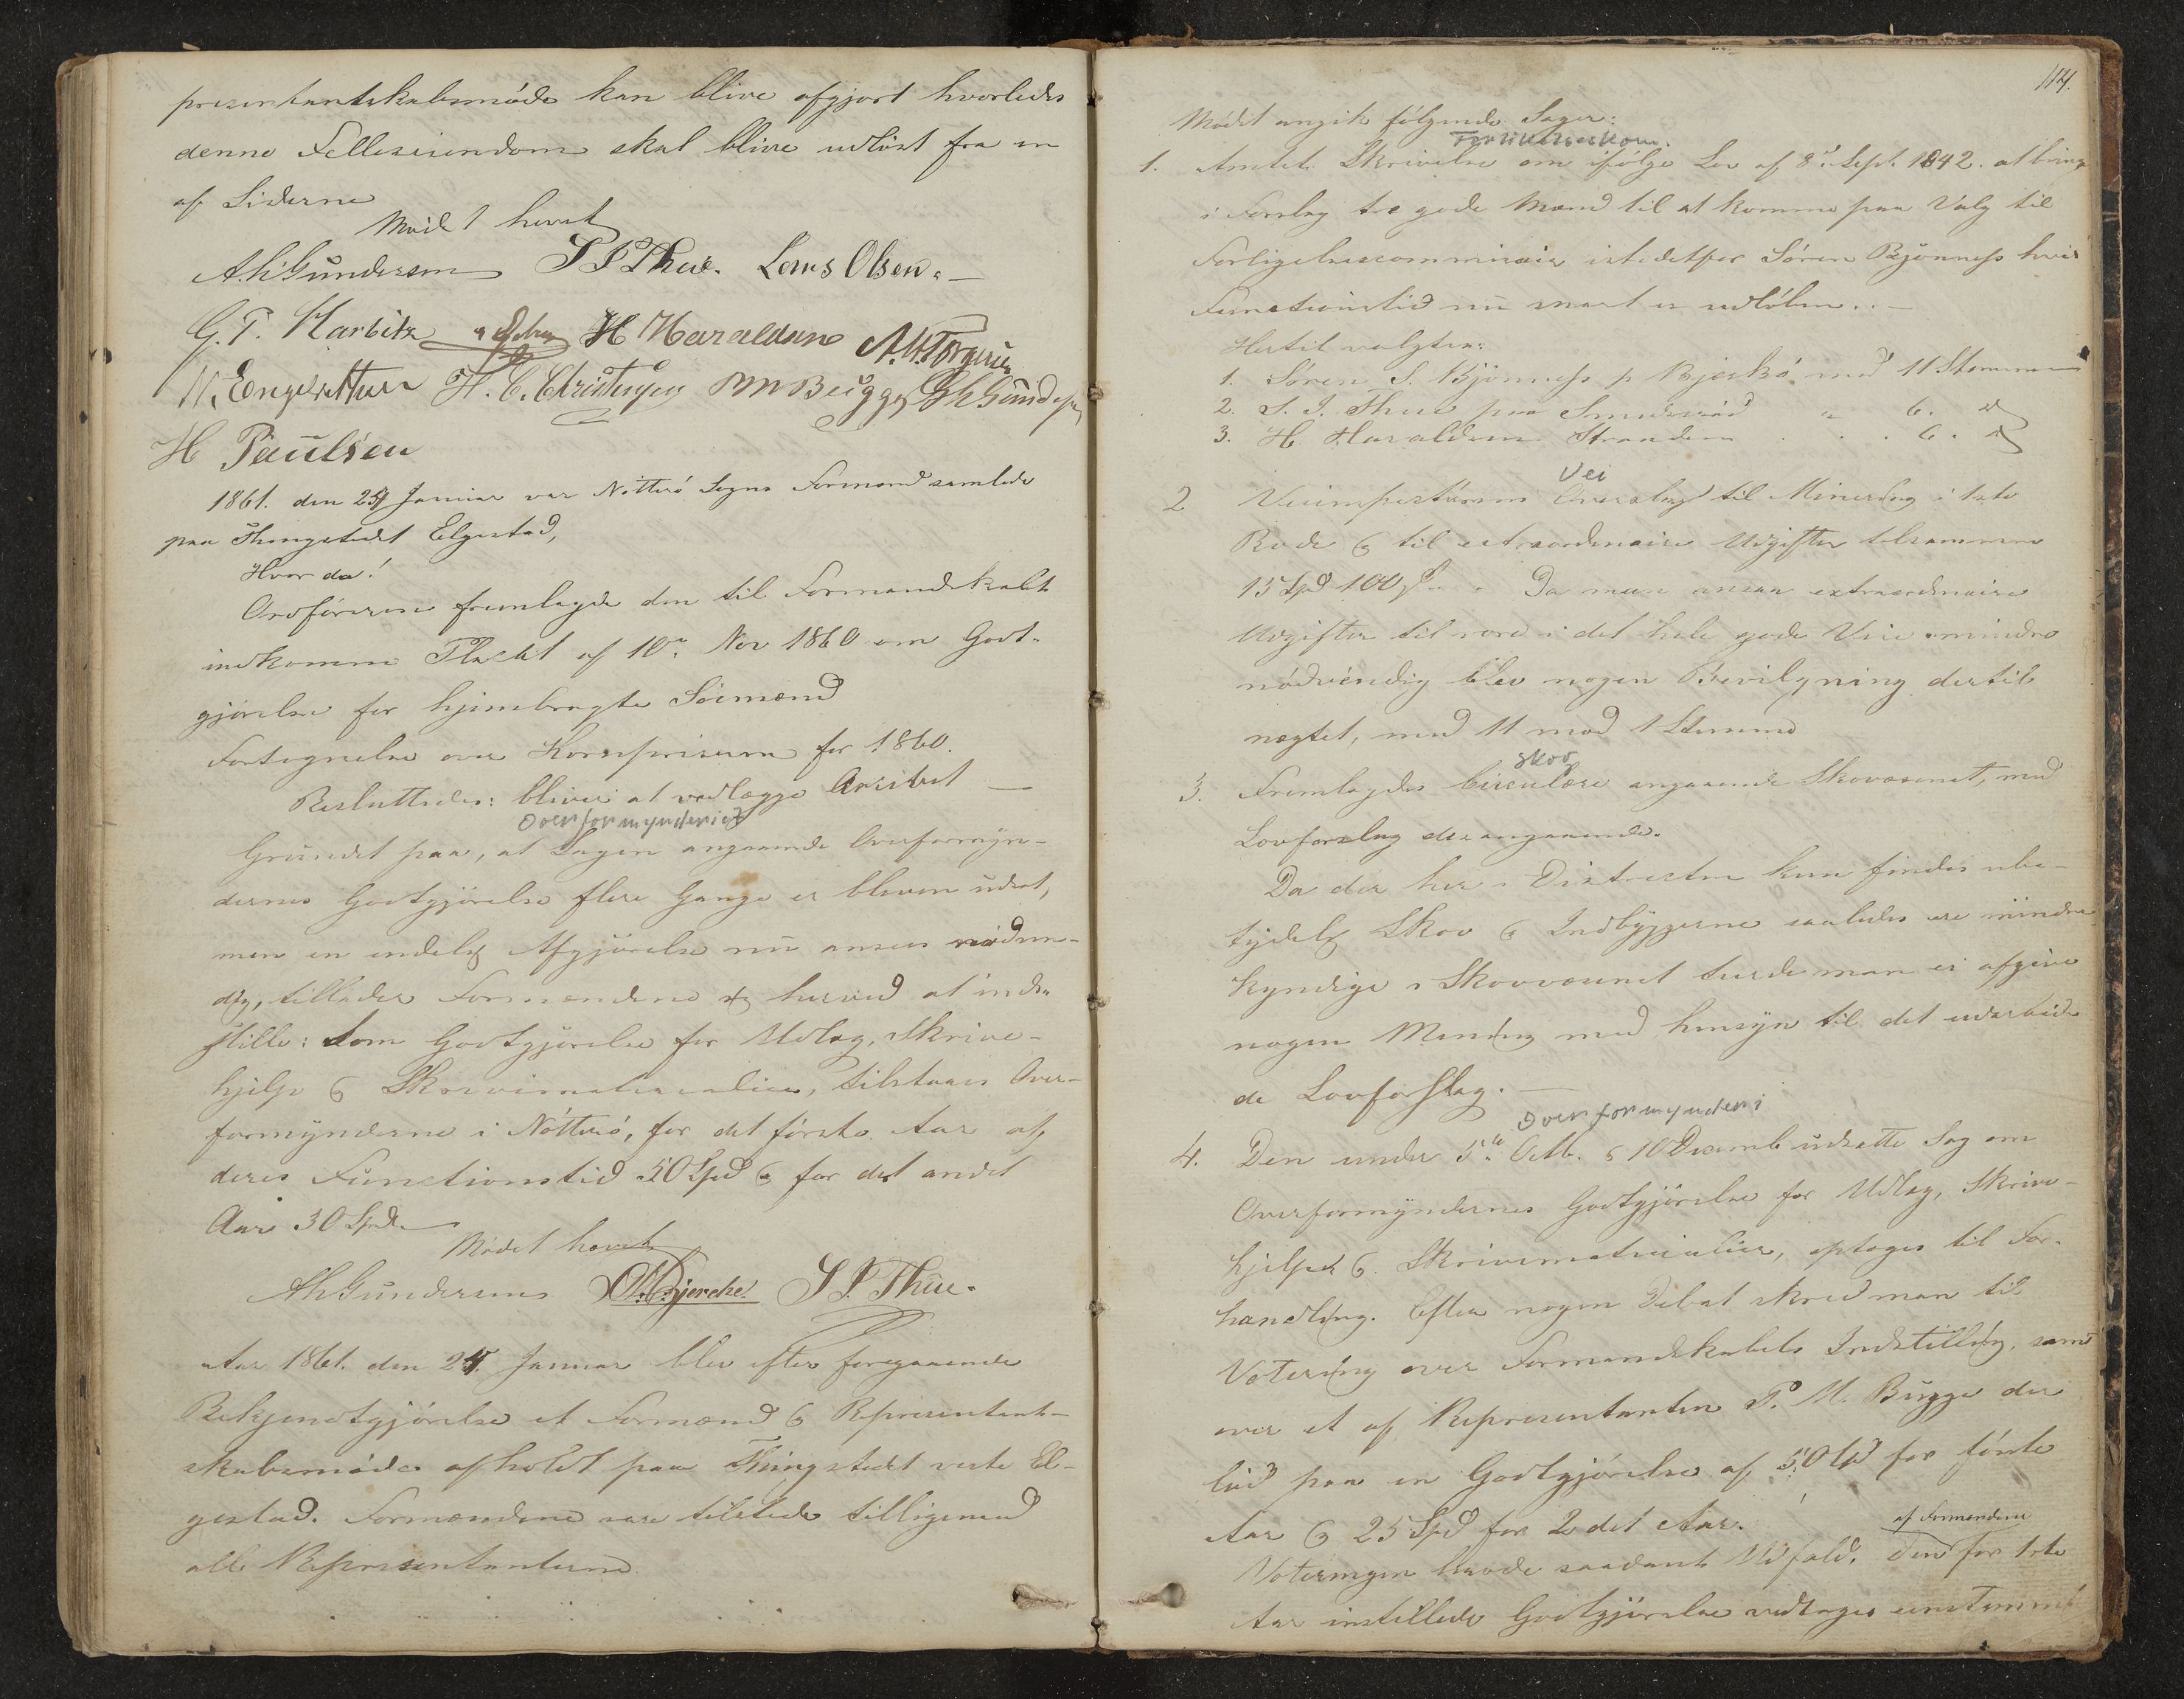 presentantskabsmøde kan blive afgjort hvorledes
denne Felleseiendom skal blive udløst fra en
af Siderne
Mødet hævet
A.H. Gundersen S J Thue. Lows Olsen.
G. T. Harbitz H Haraldsen
H. C. Christensen P M Bugge
H Paulsen
1861. den 24 Januar var Nøtterø Sogns Formænd samlede
paa Thingstedet Elgestad,
Hvor da!
Ordføreren fremlagde den til Formandskabet
indkomne Placat af 10. Nov 1860 om Godt-
gjørelse for hjembragte Sømænd
Fortegnelse over Kornpriserne for 1860.
Besluttedes: bliver at vedlægge Arcivet
Overformynderiet
Grundet paa, at Sagen angaaende Overformyn-
dernes Godtgjørelse flere Gange er bleven udsat,
men en endelig Afgjørelse nu ansees nødven-
dig, tillader Formændene sig herved at ind-
stille: Som Godtgjørelse for Udlæg, Skrive-
hjelp & Skrivematerialier, tilstaaes Over-
formynderne i Nøtterø, for det første Aar af
deres Functionstid 50 Spd & for det andet
Aar 30 Spd.
Mødet hævet
A H Gundersen O. Bjerche. S J. Thue.
Aar 1861. den 24. Januar blev efter foregaaende
Bekjendtgjørelse et Formænd & Representant-
skabsmøde afholdt paa Thingstedet vestre El-
gestad. Formændene vare tilstede tilligemed
alle Representanterne
114.
Mødet angik følgende Sager:
Forlikelseskom.
1. Amtets Skrivelse om ifølge Lov af 8. Sept. 1842. at bringe
i Forslag tre gode Mænd til at komme paa Valg til
Forligelsescommissair istedetfor Søren Bjønness hvis
Functionstid nu snart er udløben. –
Hertil valgtes:
1. Søren S. Bjønness p Bjerkø med 11 Stemmer
2. S. J. Thue paa Smidsrød " 6. d
3. H Haraldsen Stranden . . . 6. d
Vei
2 Veiinspecteurens Overslag til Minering i 1ste
Rode & til extraordinaire Udgifter tilsammen
15 Spd 100 s. Da man ansaa extraordinaire
Udgifter til vore i det hele gode Veie mindre
nødvendig blev nogen Bevilgning dertil
nægtet, med 11 mod 1 Stemme
Skog
3. Fremlagdes Circulære angaaende Skovvæsenet, med
Lovforslag desangaaende.
Da der her i Districtet kun findes ube-
tydelig Skov & Indbyggerne saaledes ere mindre
kyndige i Skovvæsenet turde man ei afgive
nogen Mening med hensyn til det udarbeide-
de Lovforslag. –
Overformynderi
4. Den under 5te Octb. & 10 Decemb udsatte Sag om
Overformyndernes Godtgjørelse for Udlæg, Skrive-
hjelp & Skrivematerialier, optoges til For-
handling. Efter nogen Debat skred man til
Votering over Formandskabets Indstilling, samt
over et af Representanten P. M. Bugge der
lød paa en Godtgjørelse af 50 Spd for første
Aar & 25 Spd for 2det Aar.
af Formændene
Voteringen havde saadant Udfald. Den for 1ste
Aar instillede Godtgjørelse vedtoges eenstemmi